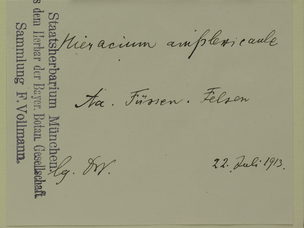 Staatsherbarium München
s dem Herbar der Bayer. Botan. Gesellschaft
Sammlung F. Vollmann.
Hieracium amplexicaule
Aa. Füssen. Felsen
lg.
22. Juli 1913.